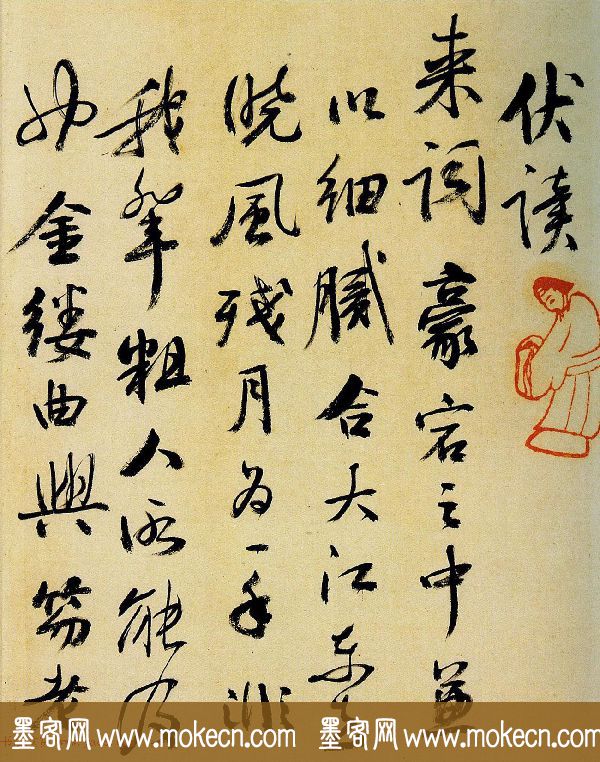 伏读
来词豪宕之中兼
以细腻合大江东去
晓风残月为一手非
我辈粗人所能为
如金缕曲兴笏老
墨客网 www.mokecn.com 墨客网 www.mokecn.com